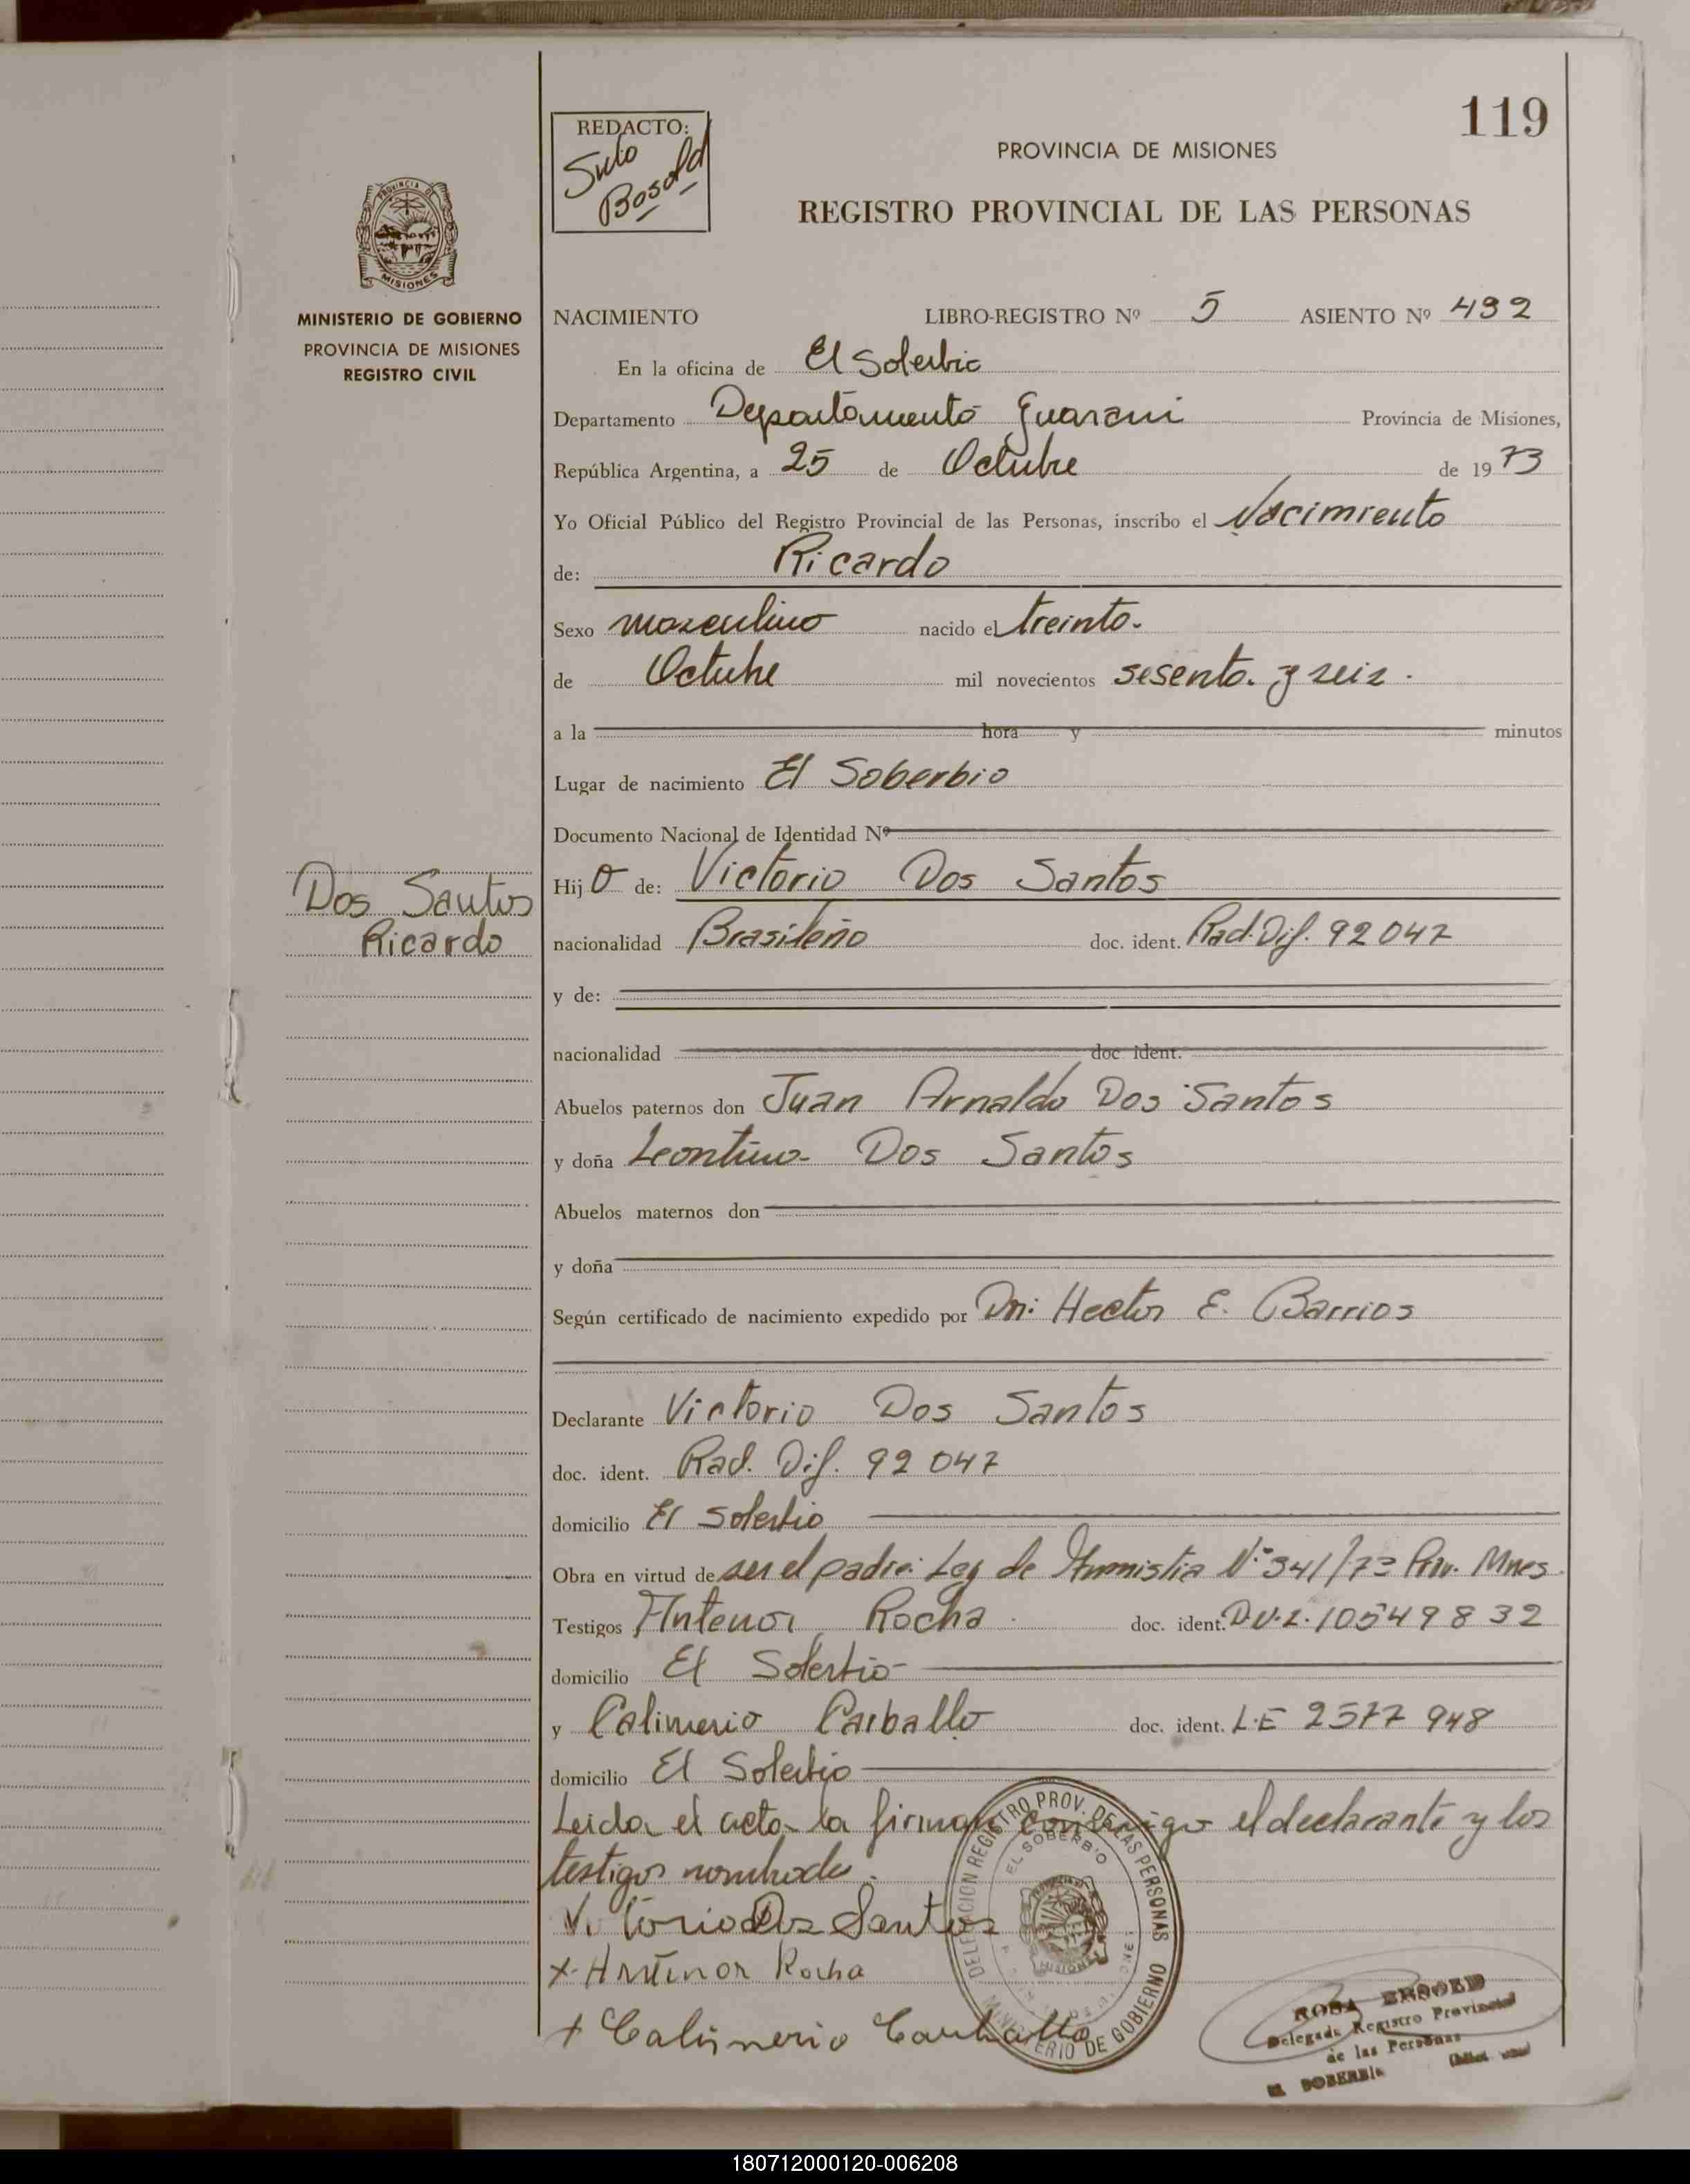 119
REDACTO:
PROVINCIA DE MISIONES
REGISTRO PROVINCIAL DE LAS PERSONAS
PROVINCIA DE
MISIONES
MINISTERIO DE GOBIERNO
PROVINCIA DE MISIONES
REGISTRO CIVIL
NACIMIENTO LIBRO-REGISTRO Nº 5 ASIENTO Nº 492
En la oficina de El Soberbio
Departamento Departamento Guarani Provincia de Misiones,
República Argentina, a 25 de Octubre de 1973
Yo Oficial Público del Registro Provincial de las Personas, inscribo el Nacimiento
de: Ricardo
Sexo masculino nacido el treinta.
de Octubre mil novecientos sesenta y seis.
a la hora y minutos
Lugar de nacimiento El Soberbio
Documento Nacional de Identidad Nº
Hijo de: Victorio Dos Santos
Dos Santos
Ricardo
nacionalidad Brasileño doc. ident. Rad. Dif. 92047
y de:
nacionalidad doc ident.
Abuelos paternos don Juan Arnaldo Dos Santos
y doña Leontina Dos Santos
Abuelos maternos don
y doña
Según certificado de nacimiento expedido por Dr: Hector E. Barrios
Declarante Victorio Dos Santos
doc. ident. Rad. Dif. 92047
domicilio El Soberbio
Obra en virtud de ser el padre: Ley de Amnistia Nº 341/73 Prov. Mnes.
Testigos Antenor Rocha doc. ident. D.U.I. 10549832
domicilio El Soberbio
y Calimerio Carballo doc. ident. L.E 2577948
domicilio El Soberbio
Leida el acta la firman conmigo el declarante y los
testigos nombrados.
Victorio Dos Santos
x Antenor Rocha
x Calimerio Carballo
DELEGACION REGISTRO PROV. DE LAS PERSONAS
EL SOBERBIO
MISIONES
MINISTERIO DE GOBIERNO
ROSA
Delegada Registro Provincial
de las Personas
EL SOBERBIO
180712000120-006208